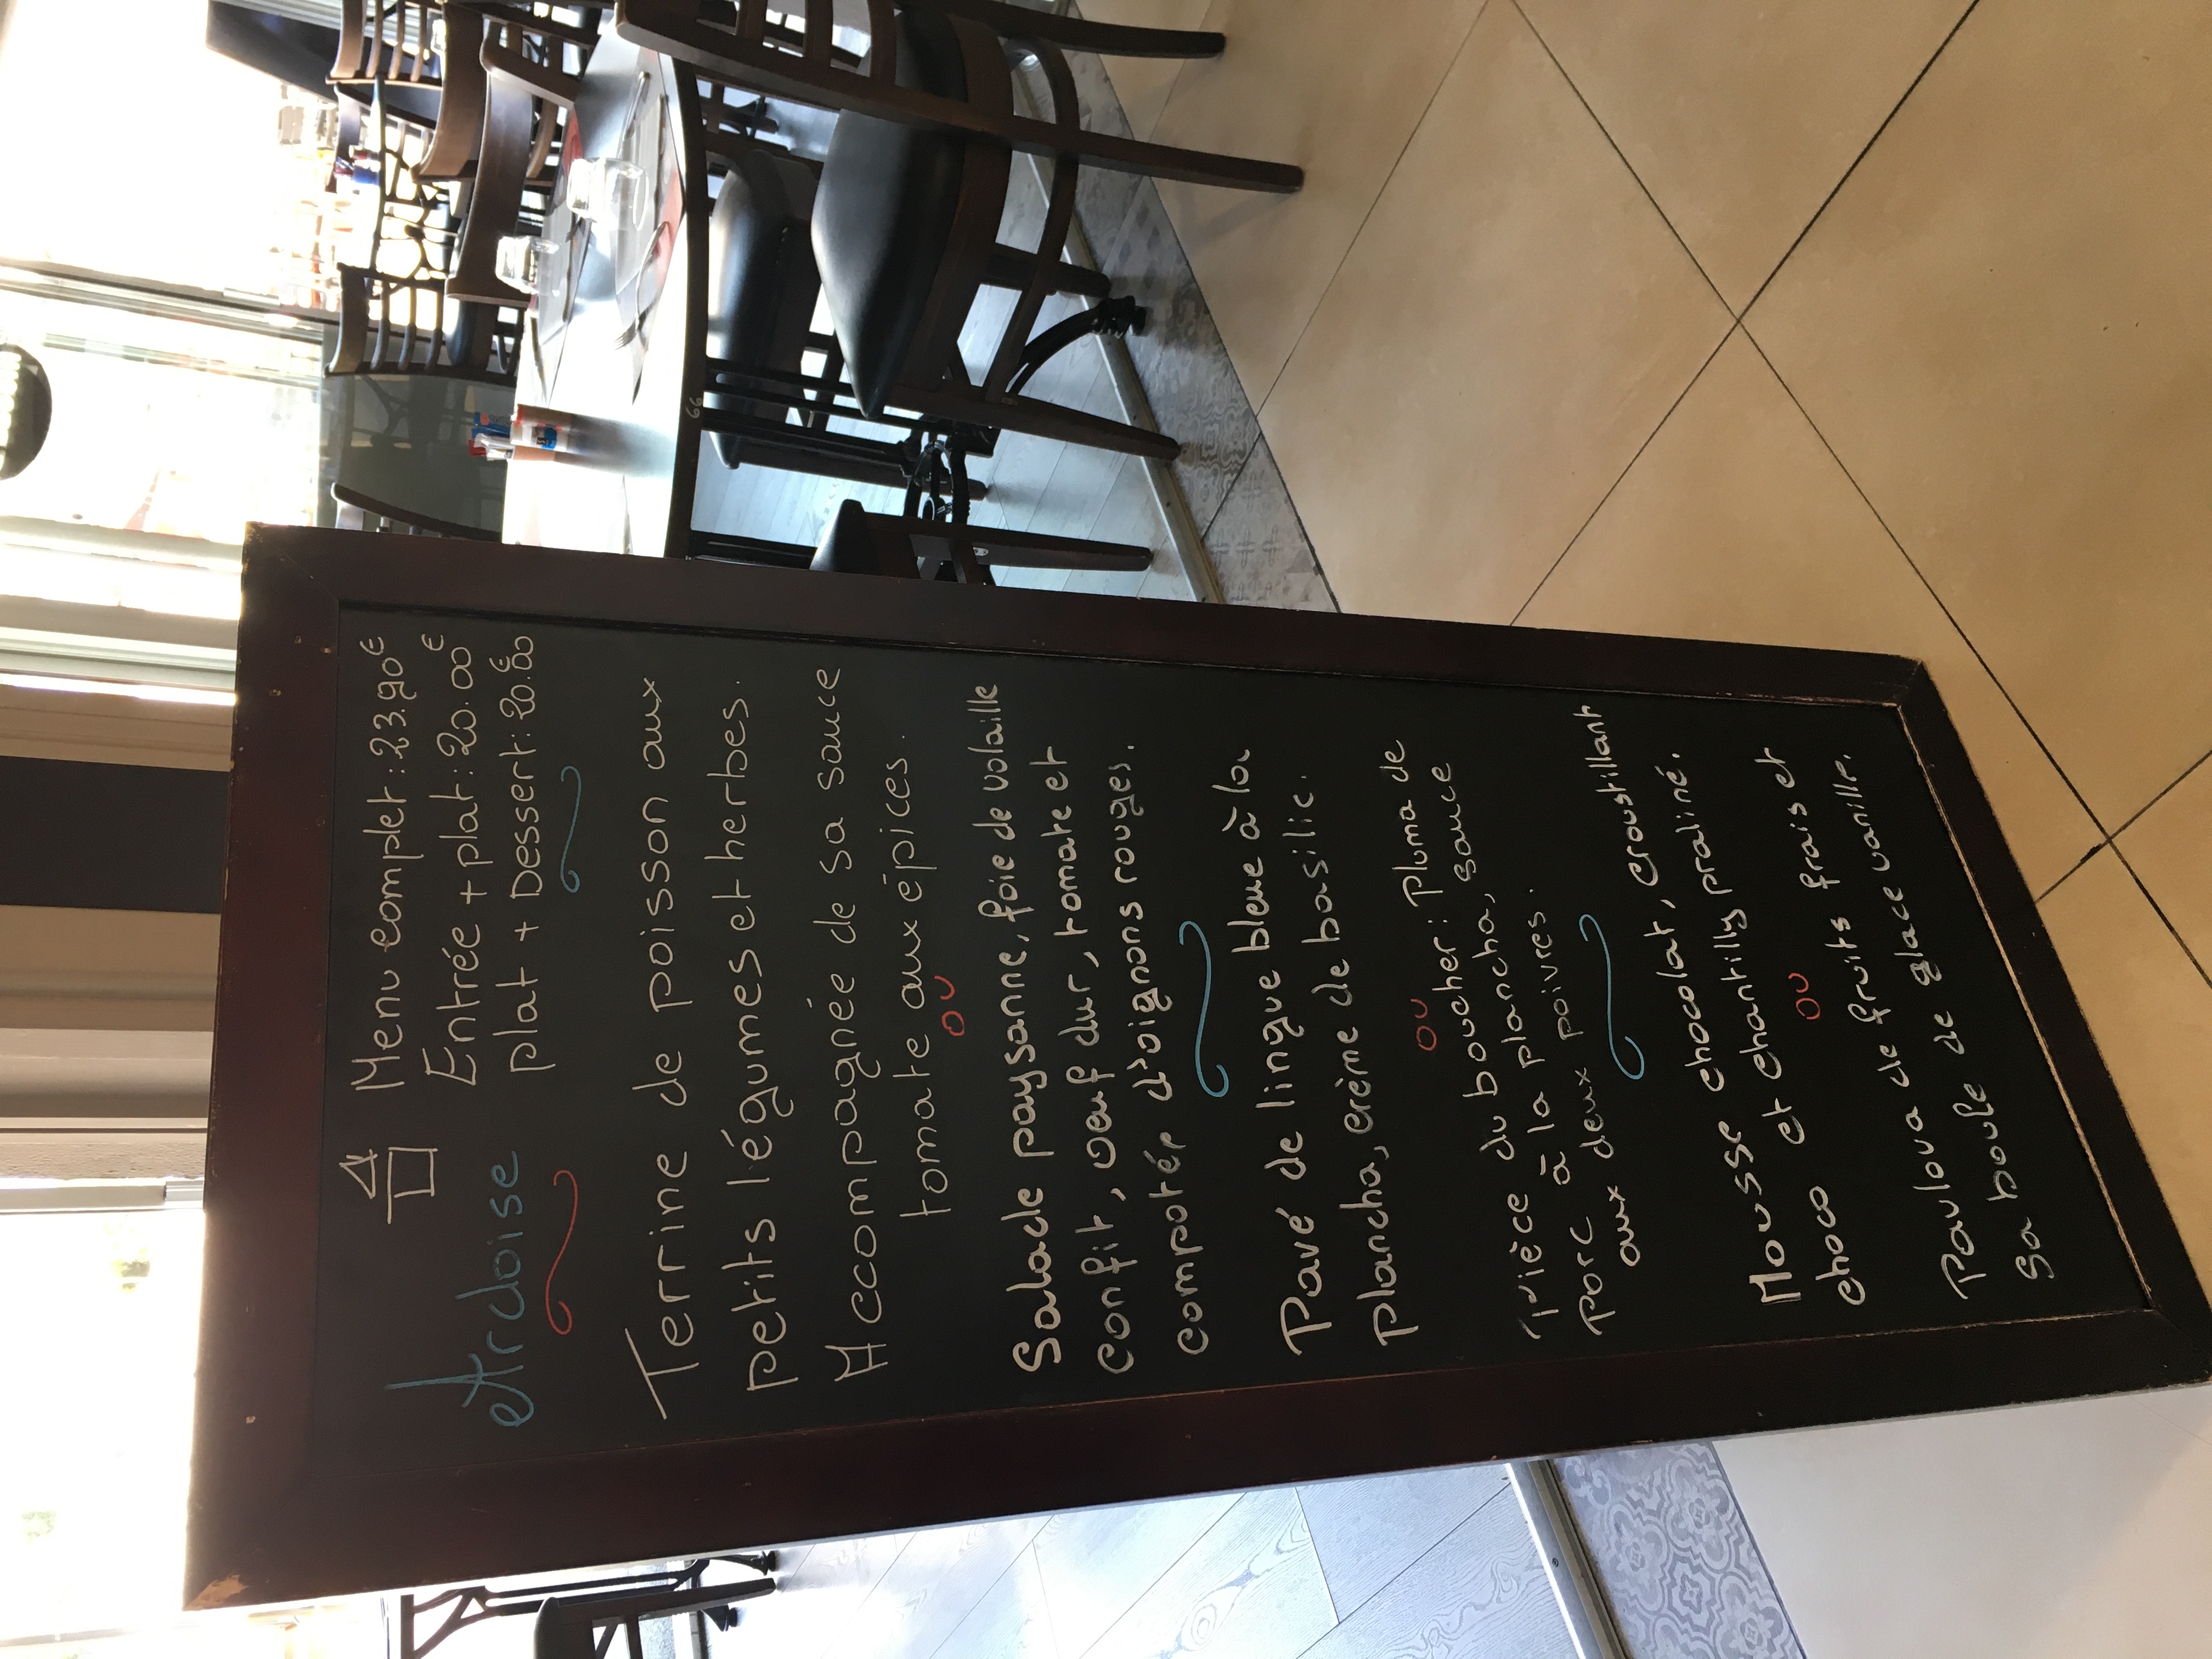 Ardoise
Menu complet : 23.90€
Entrée + plat : 20.00€
plat + Dessert : 20.00€
Terrine de poisson aux
petits légumes et herbes.
Accompagnée de sa sauce
tomate aux épices.
ou
Salade paysanne, foie de volaille
confit, oeuf dur, tomate et
compotée d'oignons rouges.
Pavé de lingue bleue à la
plancha, crème de basilic.
ou
Pièce du boucher : Pluma de
porc à la plancha, sauce
aux deux poivres.
Mousse chocolat, croustillant
choco et chantilly praliné.
ou
Pavlova de fruits frais et
sa boule de glace vanille.
66